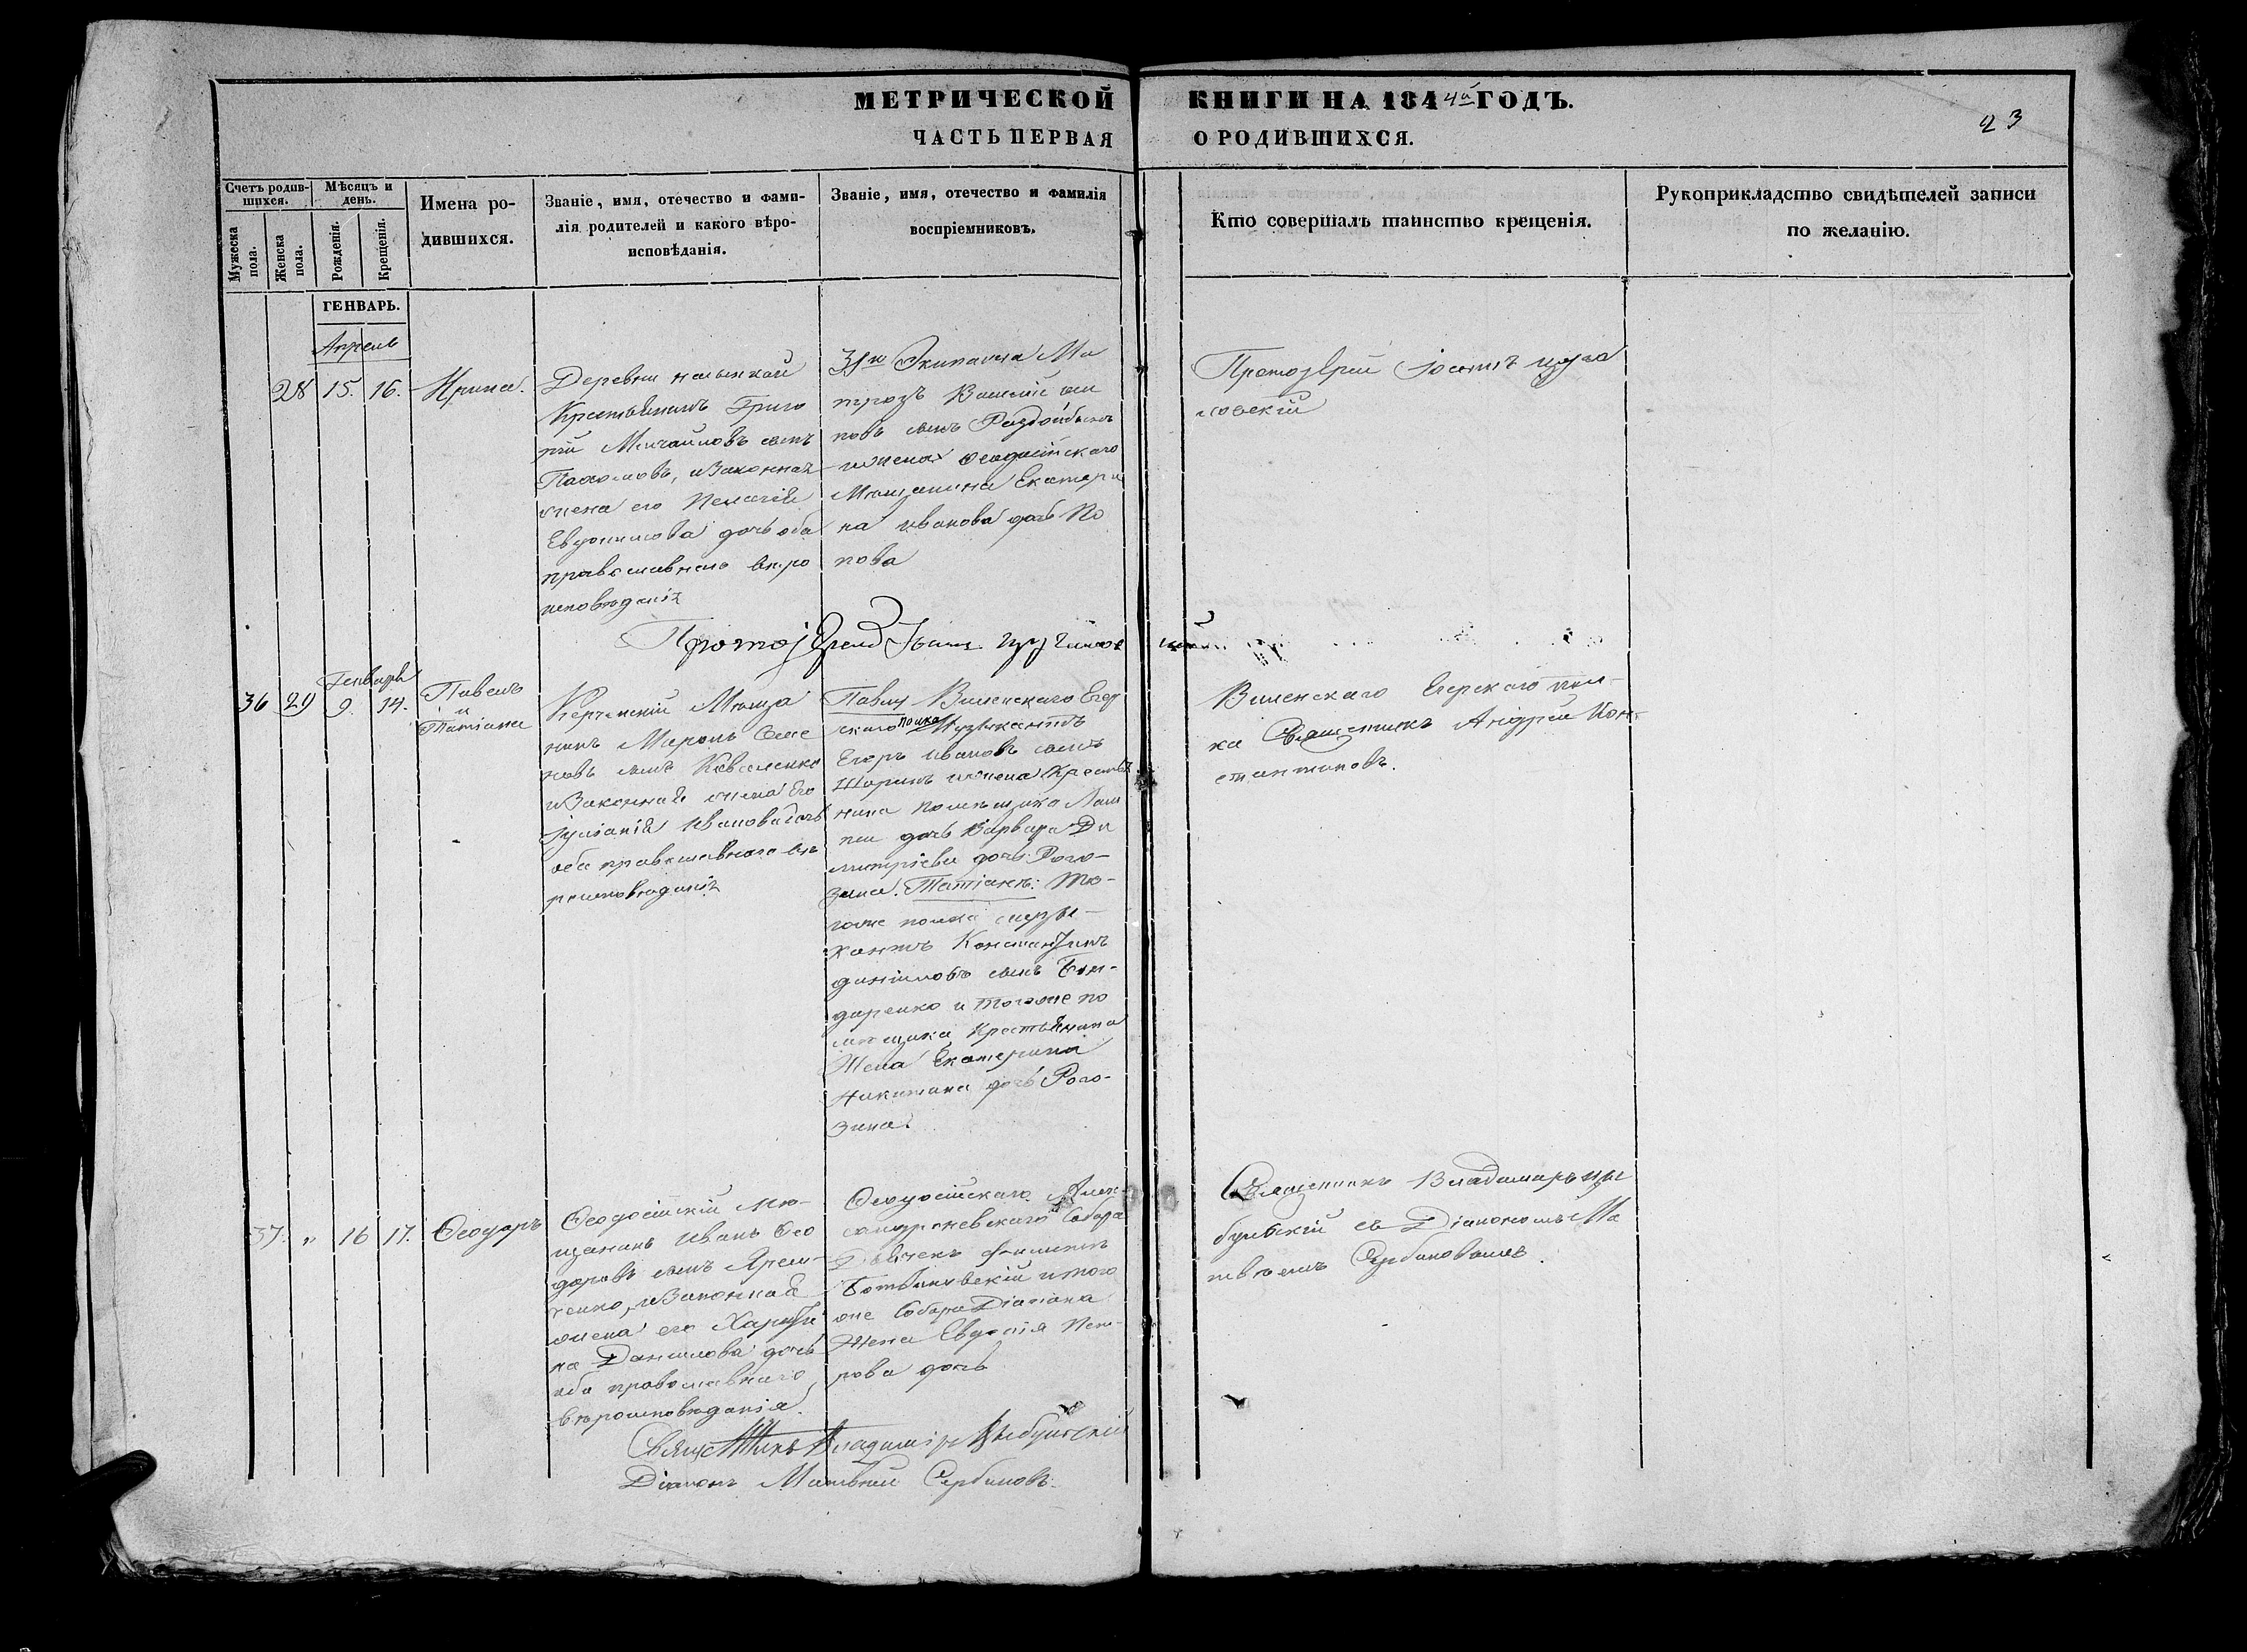 МЕТРИЧЕСКОЙ КНИГИ НА 1844й ГОДЪ.
23
ЧАСТЬ ПЕРВАЯ О РОДИВШИХСЯ.
Счетъ родив-
шихся.
Мужеска
пола.
Женска
пола.
Мѣсяцъ и
день.
Рожденія.
Крещенія.
Имена ро-
дившихся.
Званіе, имя, отечество и фами-
лія родителей и какого вѣро-
исповѣданія.
Званіе, имя, отечество и фамилія
воспріемниковъ.
Кто совершалъ таинство крещенія.
Рукоприкладство свидѣтелей записи
по желанію.
ГЕНВАРЬ.
Апрель
28 15. 16. Ирина.
Деревни
Крестьянинъ Григо
рій Михайловъ сынъ
Пахомовъ, и законная
жена его Пелагія
дочь оба
православнаго вѣро
исповѣданія
31го Экипажа Ма
трозъ
повъ сынъ
и жена Ѳеодосійскаго
Мѣщанина Екатери
на Иванова дочь По
пова
Протоіерей
Протоіерей
36 29
Генваря
9. 14.
Павелъ
и
Татіана
Керченскій Мѣща
нинъ Миронъ Семе
новъ сынъ Коваленко
и законная жена его
Іуліанія Иванова дочь
оба православнаго вѣ
роисповѣданія
Павлу Виленскаго Егер
скаго полка Музыкантъ
Егоръ Ивановъ сынъ
Шаринъ и жена Крестья
нина помѣщика
дочь Варвара Ди
митріева дочь Рого-
зина. Татіанѣ: То-
гоже полка музы-
кантъ Константинъ
Даниловъ сынъ Бон-
даренко и тогоже по
мѣщика Крестьянина
Жена Екатерина
Никитина дочь Рого-
зина.
Виленскаго Егерскаго пол-
ка Священникъ Андрей Кон-
стантиновъ.
37. „ 16 17. Ѳеодоръ
Ѳеодосійскій мѣ-
щанинъ Иванъ Ѳео
доровъ сынъ Ярем-
ченко, и законная
жена его Харити
на Данилова дочь
оба православнаго
вѣроисповѣданія.
Ѳеодосійскаго Алек-
сандроневскаго Собора
Дьячекъ Филиппъ
и того
же Собора Діакона
Жена Евдокія Пет-
рова дочь
Священникъ Владимиръ Цы
бульскій съ Діакономъ Ма
твѣемъ Сербиновымъ.
Священникъ Владиміръ Цыбульскій
Діаконъ Матвѣй Сербиновъ.